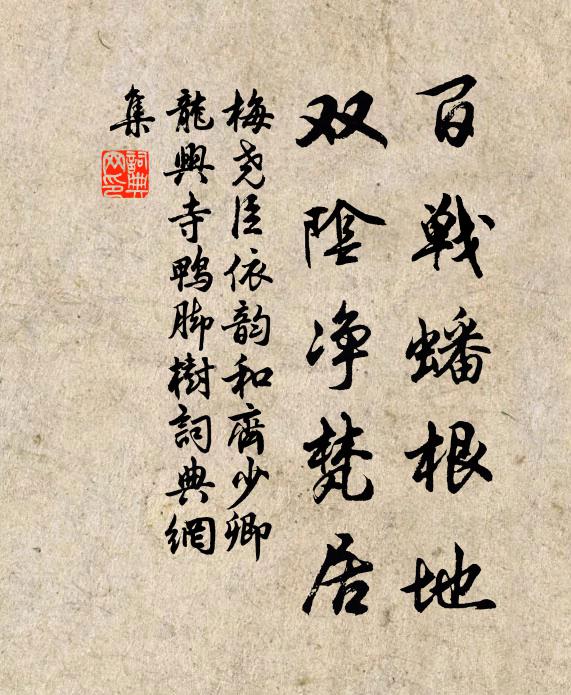 百戦蟠根地
双陰净梵居
梅尧臣依韵和齊少卿
龍興寺鴨脚樹詞典網
集
詞典
网印